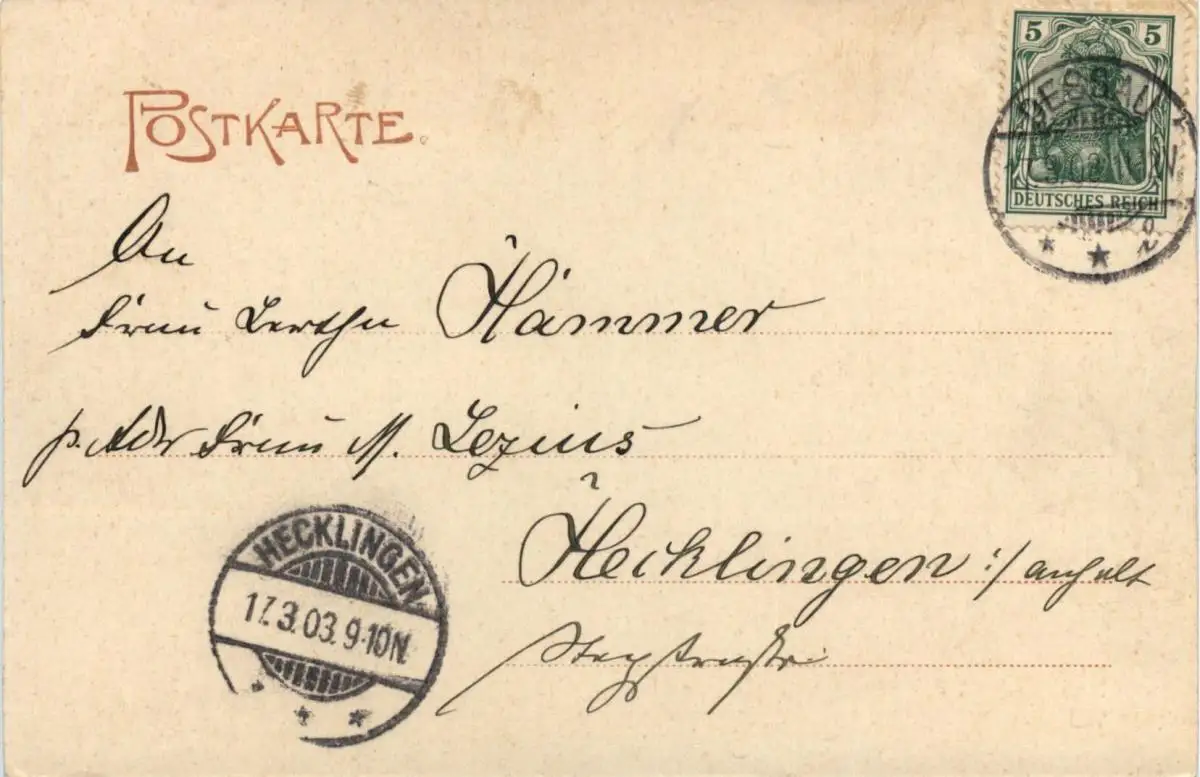 POSTKARTE
5 5
DESSAU
DEUTSCHES REICH
An
Frau Bertha Hämmer
p. Adr Frau M. Lezius
Hecklingen i/Anhalt
HECKLINGEN
17.3.03. 9-10N.